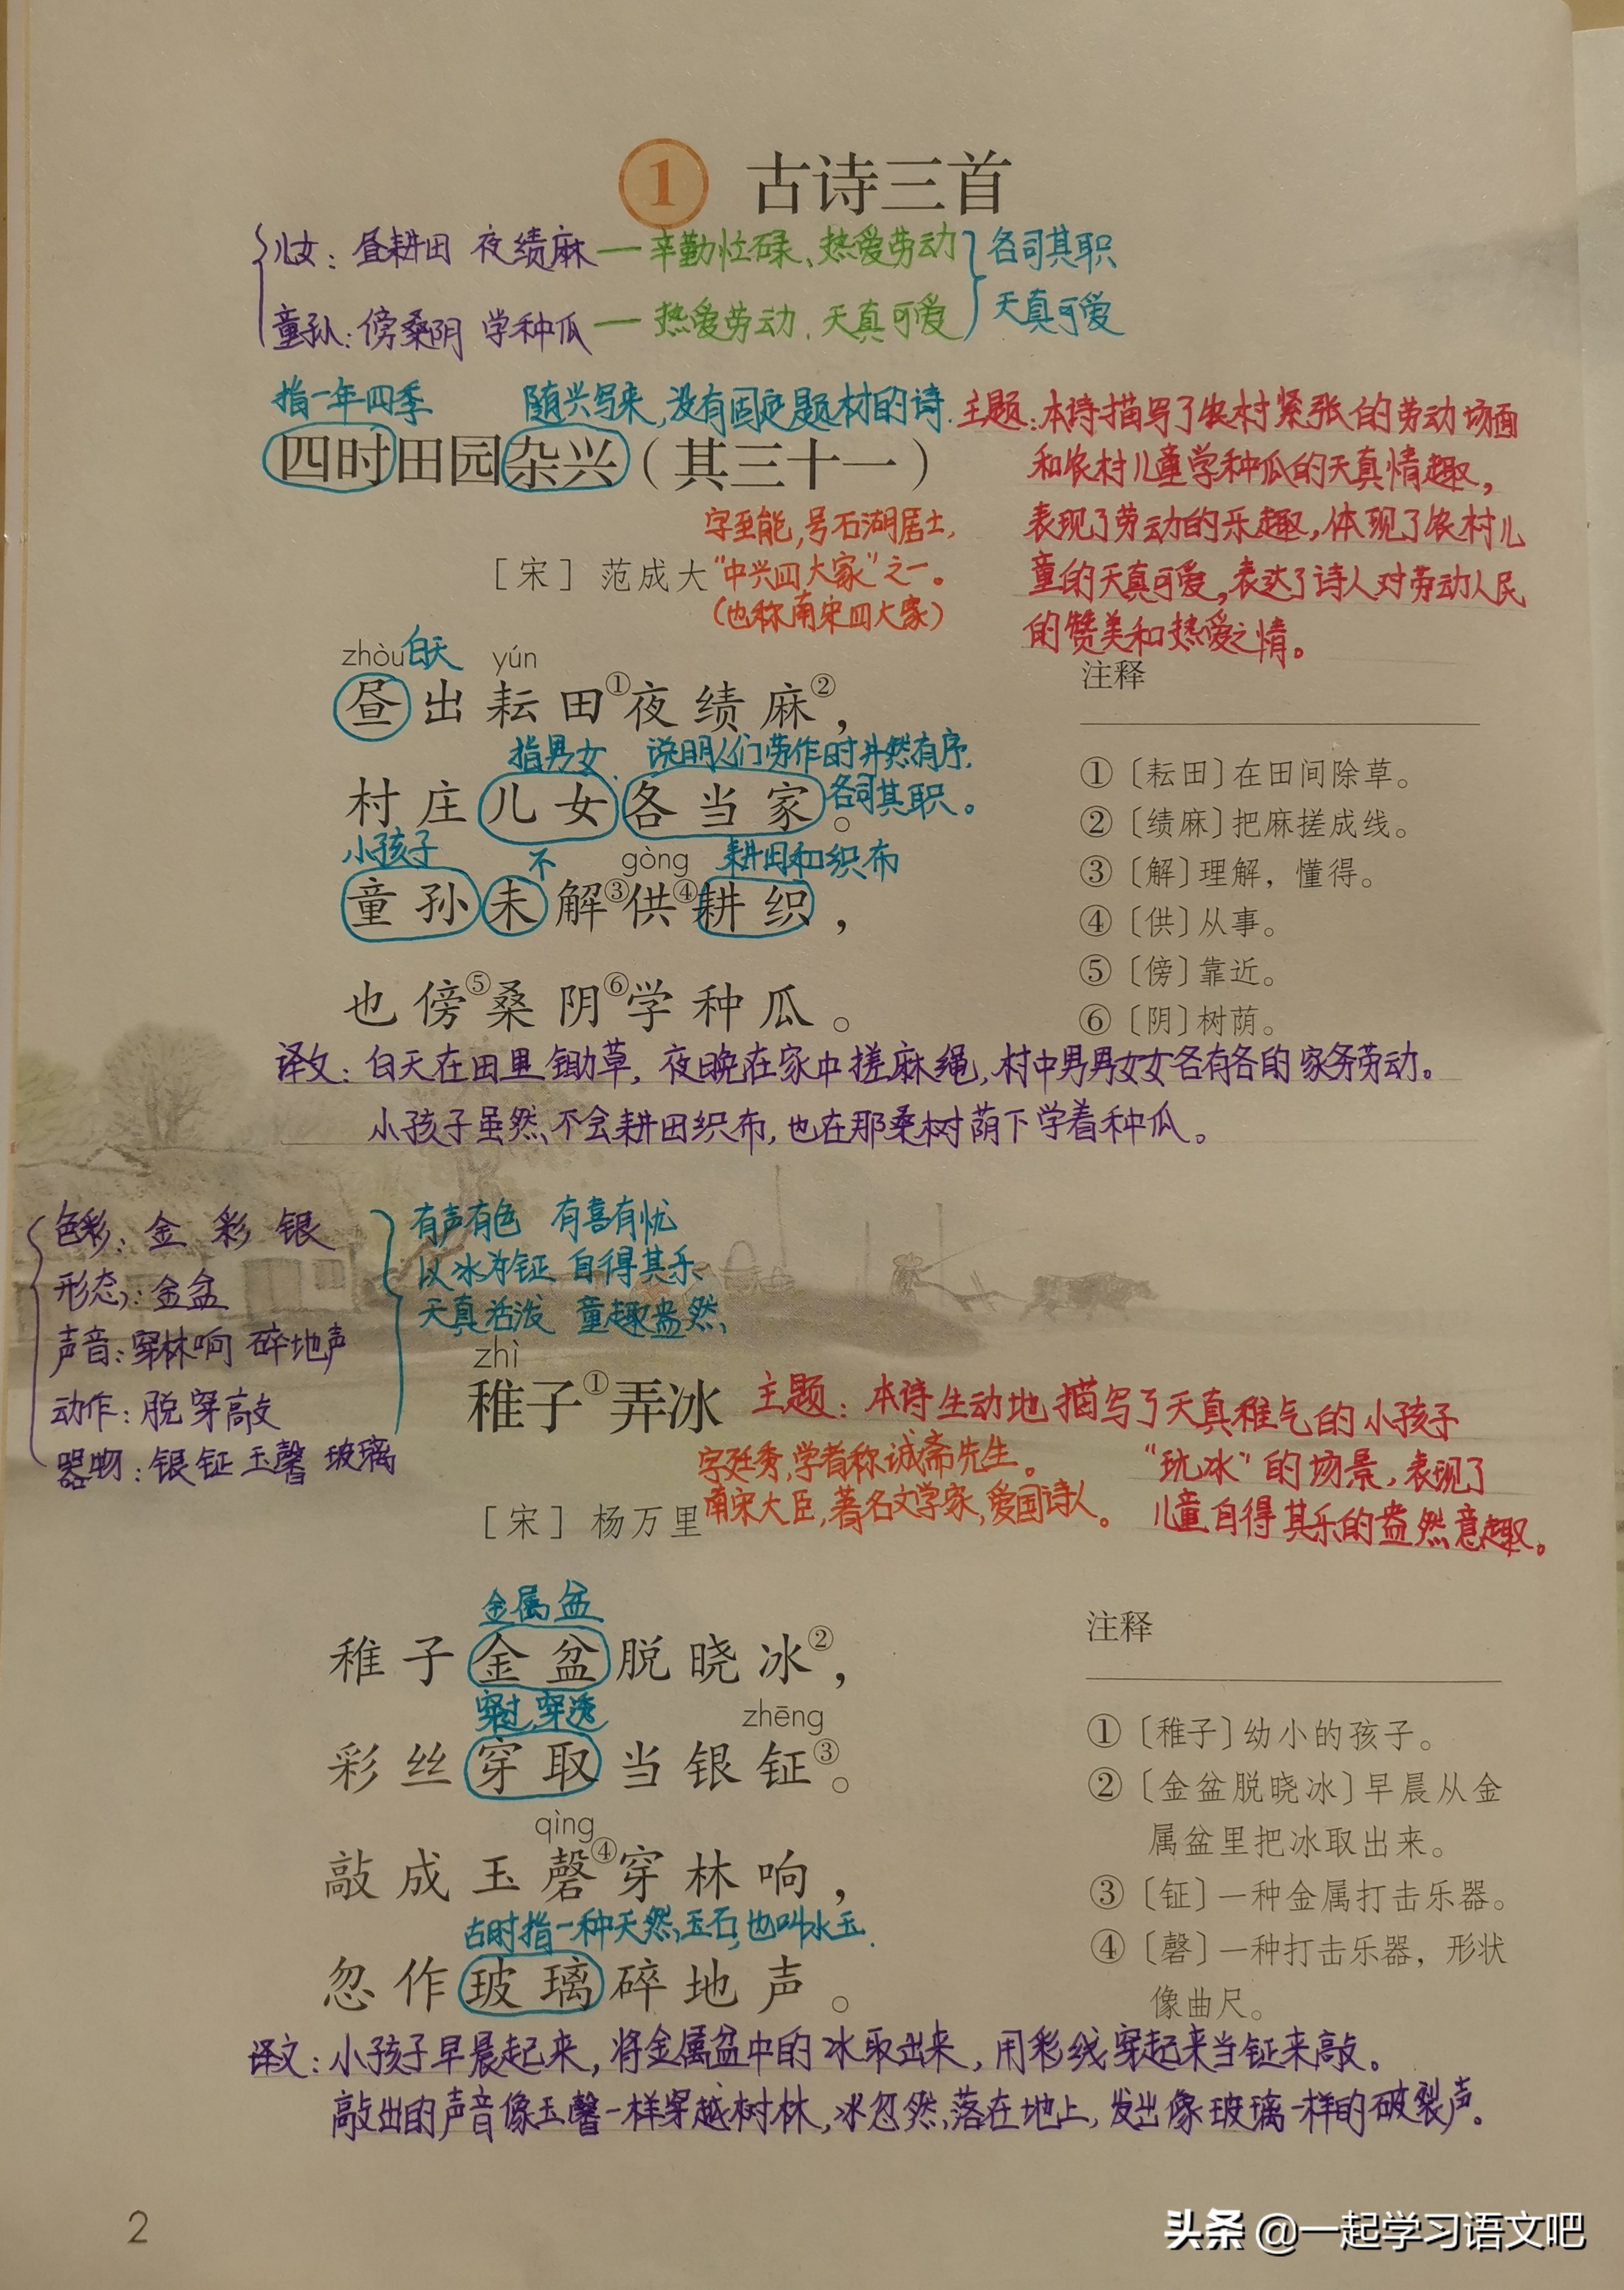 1 古诗三首
儿女：昼耕田 夜绩麻——辛勤忙碌、热爱劳动 各司其职
童孙：傍桑阴 学种瓜——热爱劳动、天真可爱 天真可爱
指一年四季 随兴写来，没有固定题材的诗.
四时田园杂兴（其三十一）
主题：本诗描写了农村紧张的劳动场面
和农村儿童学种瓜的天真情趣，
表现了劳动的乐趣，体现了农村儿
童的天真可爱，表达了诗人对劳动人民
的赞美和热爱之情。
字至能，号石湖居士，
［宋］范成大 “中兴四大家”之一。
（也称南宋四大家）
zhòu 白天 yún
昼出耘田①夜绩麻②，
指男女 说明人们劳作时井然有序，
村庄儿女各当家。 各司其职。
小孩子 不 gòng 耕田和织布
童孙未解③供④耕织，
也傍⑤桑阴⑥学种瓜。
注释
①〔耘田〕在田间除草。
②〔绩麻〕把麻搓成线。
③〔解〕理解，懂得。
④〔供〕从事。
⑤〔傍〕靠近。
⑥〔阴〕树荫。
译文：白天在田里锄草，夜晚在家中搓麻绳，村中男男女女各有各的家务劳动。
小孩子虽然不会耕田织布，也在那桑树荫下学着种瓜。
色彩：金 彩 银
形态：金盆
声音：穿林响 碎地声
动作：脱 穿 敲
器物：银钲 玉馨 玻璃
有声有色 有喜有忧
以冰为钲 自得其乐
天真活泼 童趣盎然
zhì
稚子①弄冰
主题：本诗生动地描写了天真稚气的小孩子
“玩冰”的场景，表现了
儿童自得其乐的盎然意趣。
字廷秀，学者称诚斋先生。
［宋］杨万里 南宋大臣，著名文学家，爱国诗人。
金属盆
稚子金盆脱晓冰②，
穿过，穿透 zhēng
彩丝穿取当银钲③。
qìng
敲成玉磬④穿林响，
古时指一种天然玉石，也叫水玉.
忽作玻璃碎地声。
注释
①〔稚子〕幼小的孩子。
②〔金盆脱晓冰〕早晨从金
属盆里把冰取出来。
③〔钲〕一种金属打击乐器。
④〔磬〕一种打击乐器，形状
像曲尺。
译文：小孩子早晨起来，将金属盆中的冰取出来，用彩线穿起来当钲来敲。
敲出的声音像玉馨一样穿越树林，冰忽然落在地上，发出像玻璃一样的破裂声。
2
头条 @一起学习语文吧